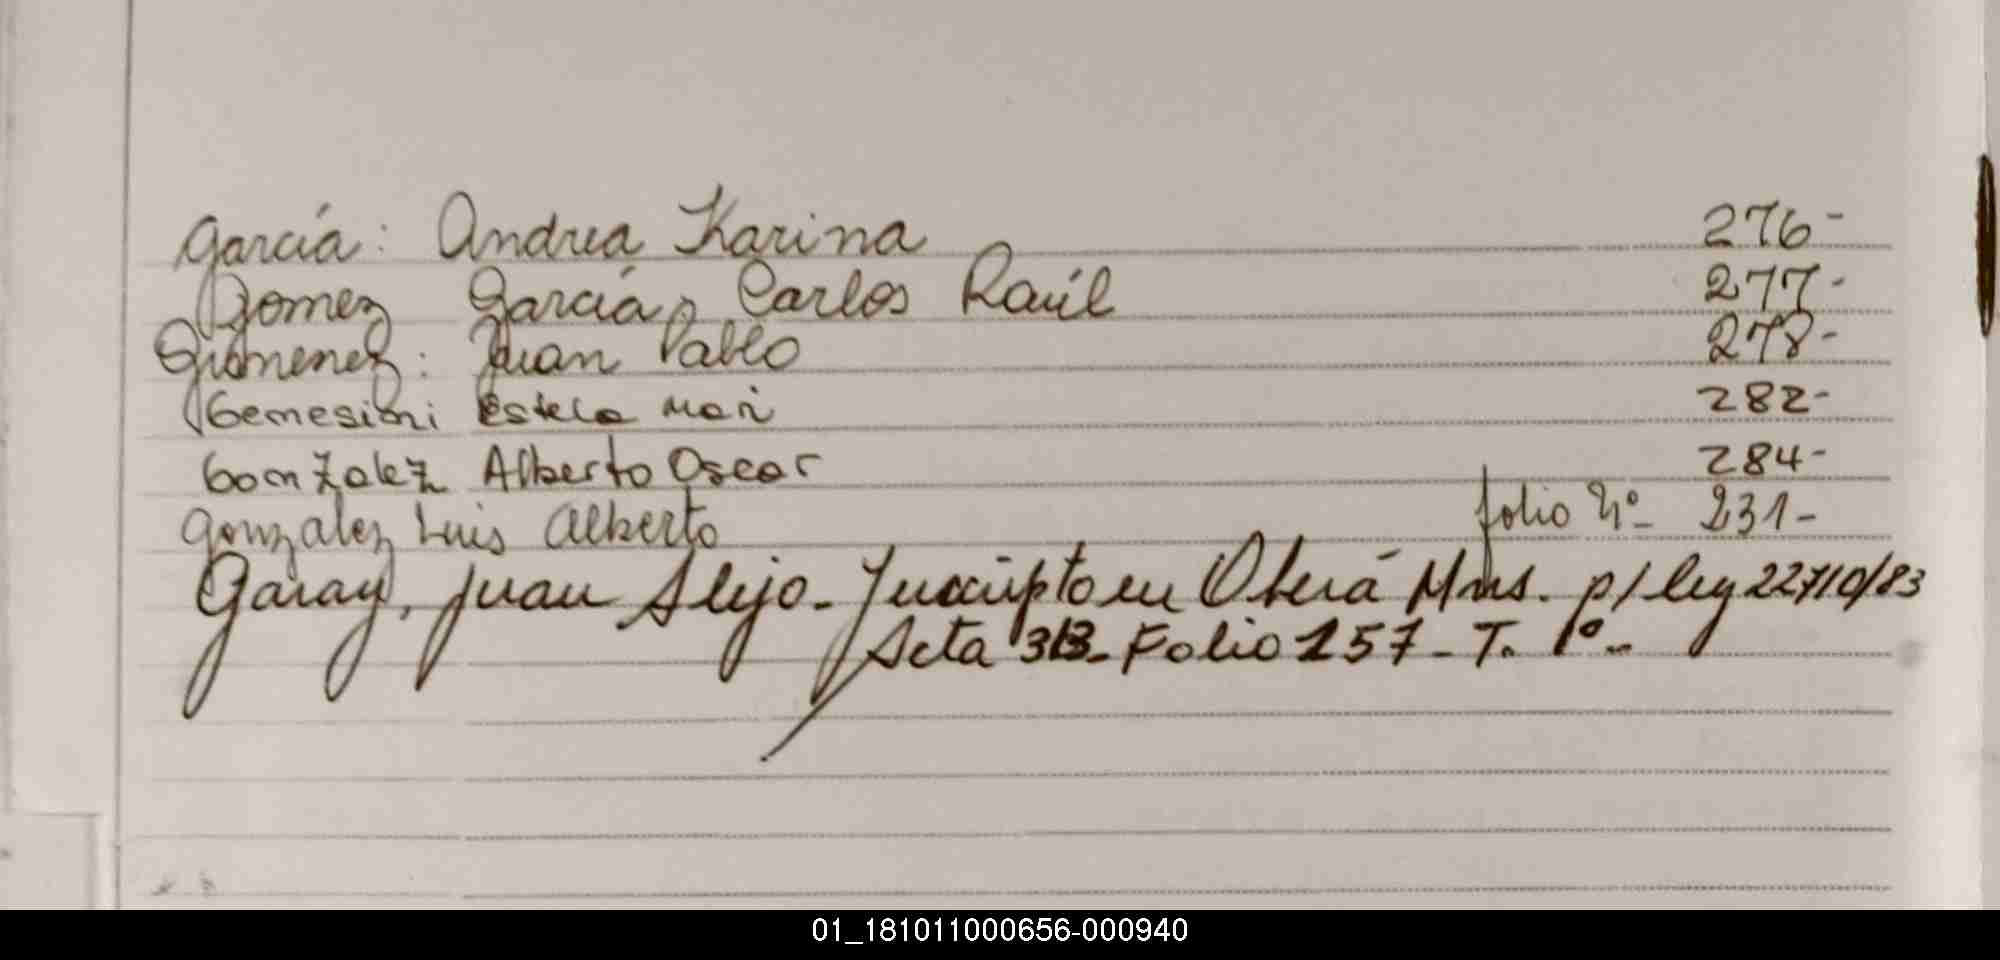 García: Andrea Karina 276-
Gomez García, Carlos Raúl 277-
Gimenez: Juan Pablo 278-
Gemesini Estela Mari 282-
Gonzalez Alberto Oscar 284-
Gonzalez Luis Alberto folio Nº 231-
Garay, Juan Alejo. Inscripto en Oberá Mns. p/ ley 22710/83
Acta 313-Folio 157-T. 1º
01_181011000656-000940